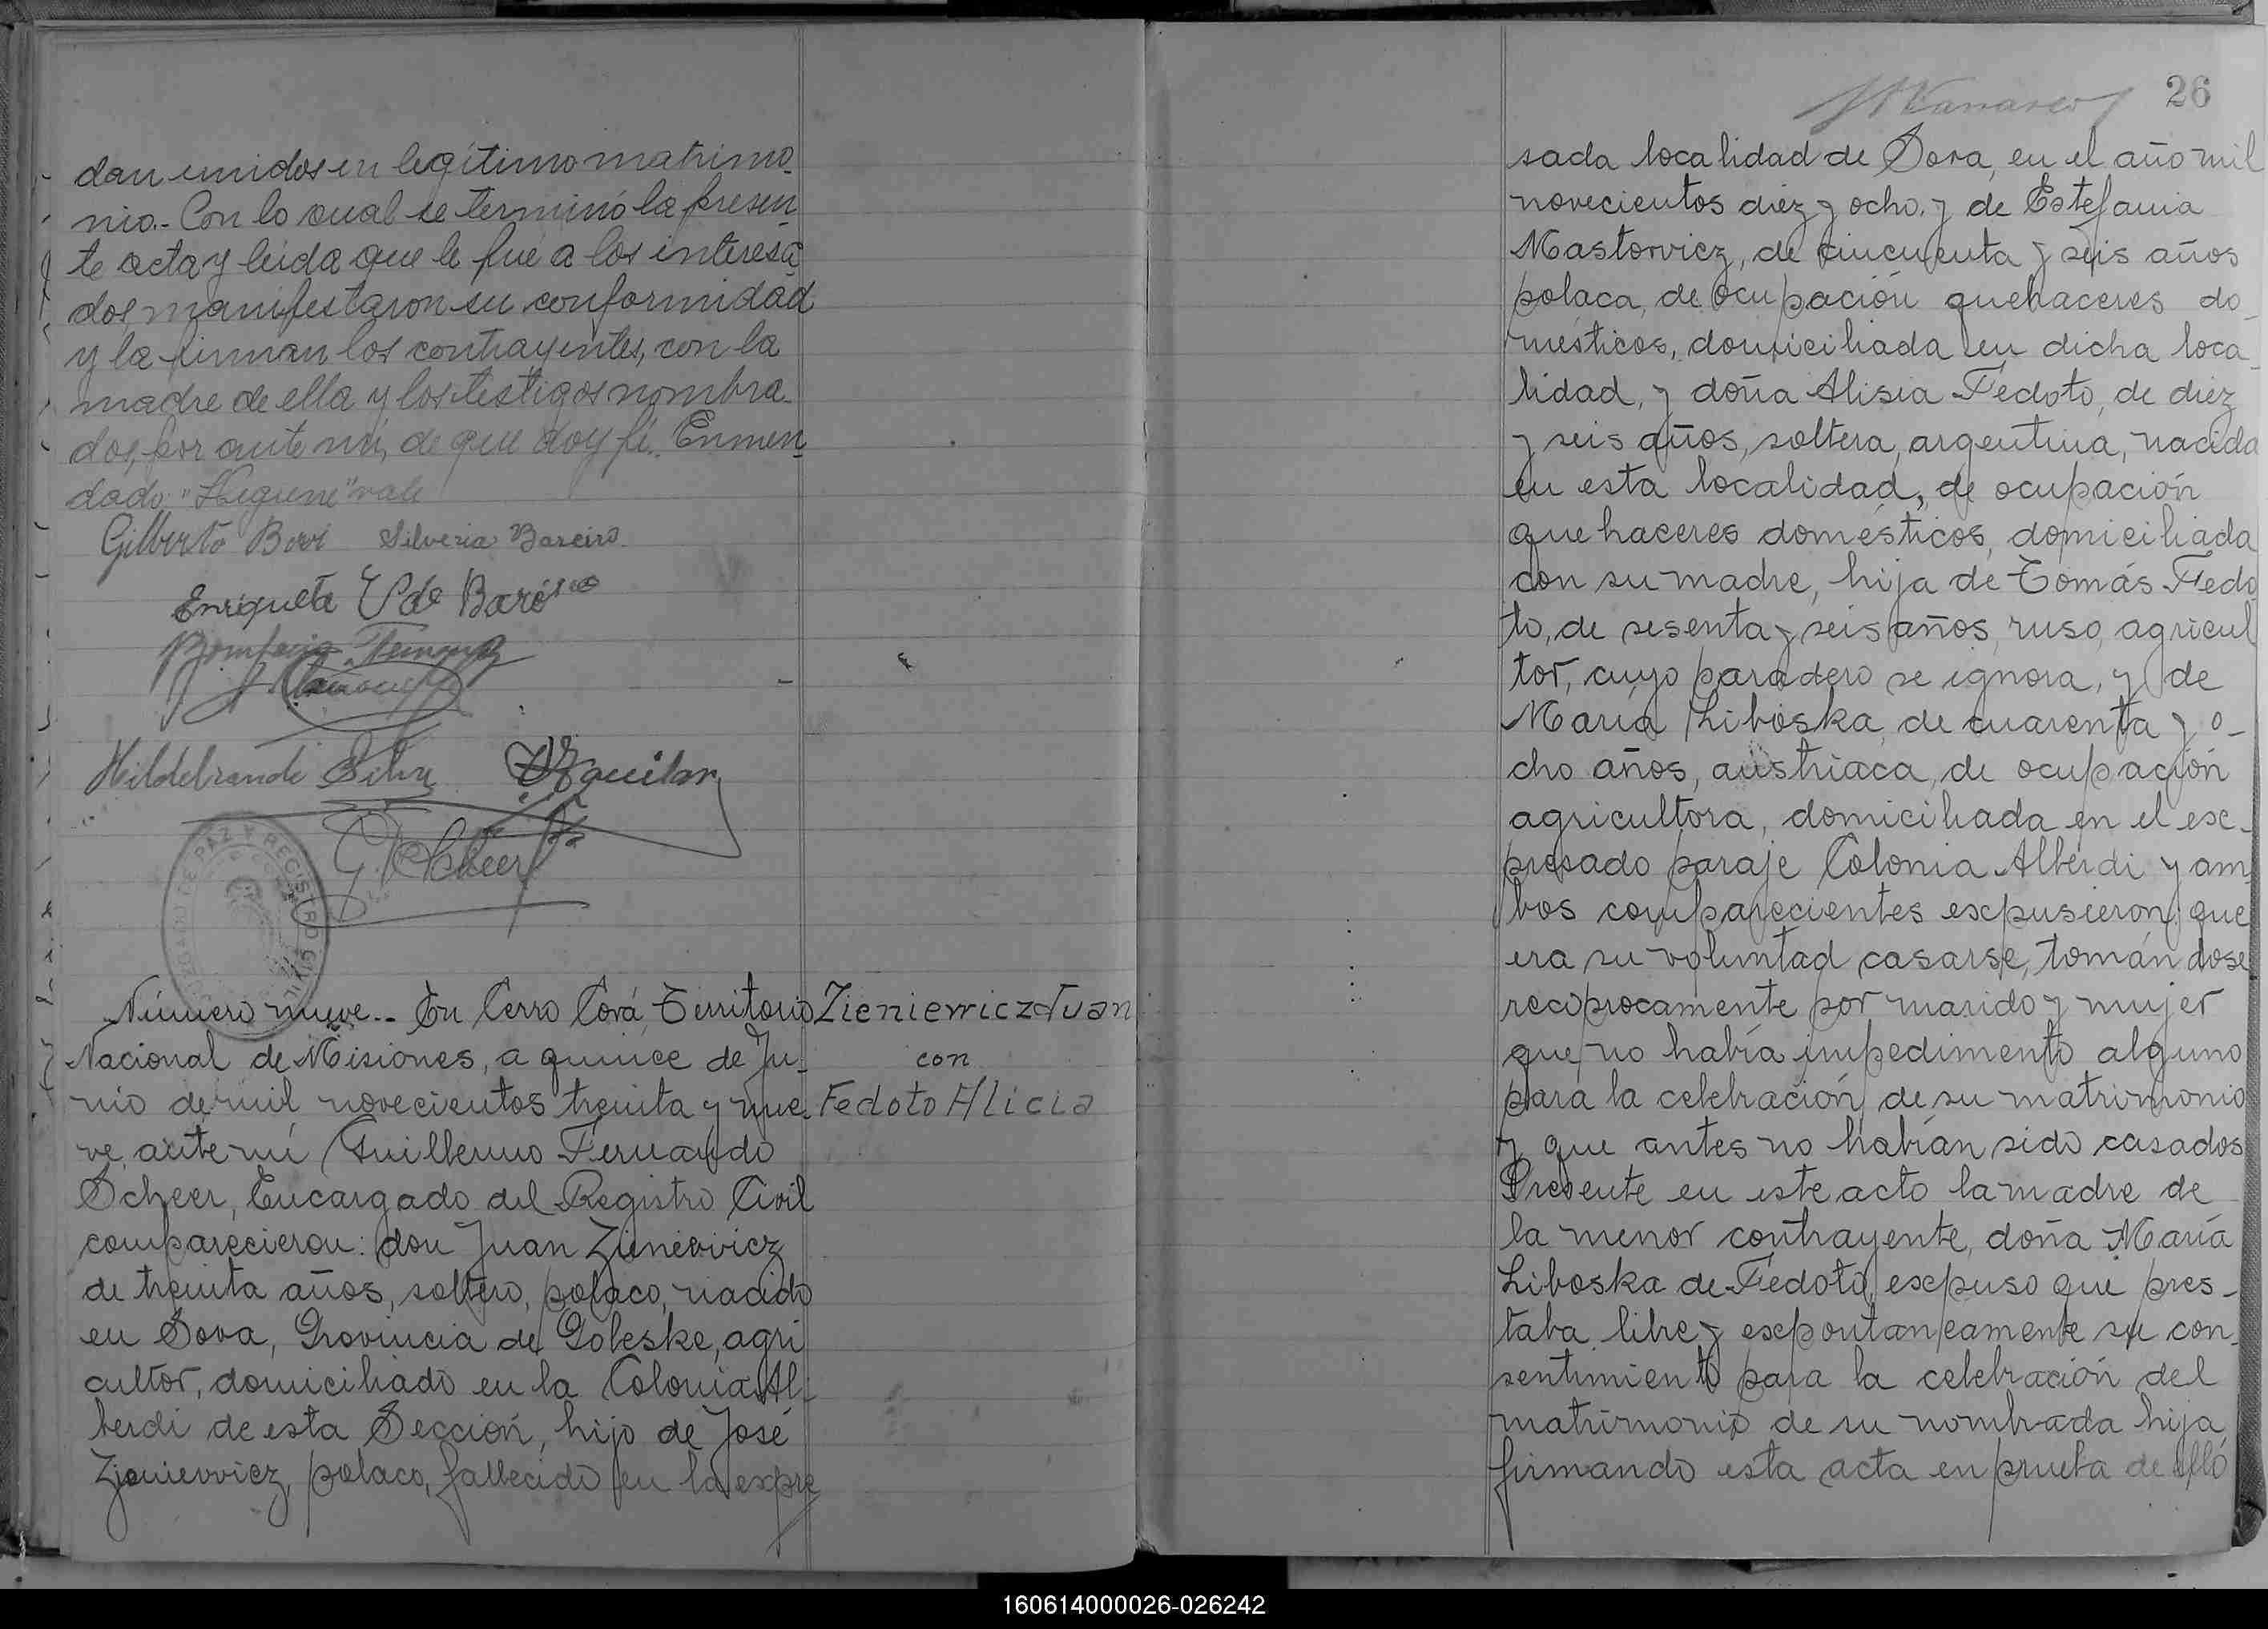 dan unidos en legítimo matrimo-
nio.- Con lo cual se terminó la presen-
te acta y leída que le fué a los interesa-
dos, manifestaron su conformidad
y la firman los contrayentes, con la
madre de ella y los testigos nombra-
dos, por ante mí, de que doy fé.. Enmen-
dado: "Higueni" vale
Gilberto Silveria Bareiro
Enriqueta de
Hildebrando Silva Aguilar
G. F. Scheer
DE PAZ Y REGISTRO CIVIL
Número nueve.- En Cerro Corá, Territorio
Nacional de Misiones, a quince de Ju-
nio de mil novecientos treinta y nue-
ve, ante mí Guillermo Fernando
Scheer, Encargado del Registro Civil
comparecieron: don Juan Zieniewicz
de treinta años, soltero, polaco, nacido
en Sova, Provincia de Poleske, agri
cultor, domiciliado en la Colonia Al-
berdi de esta Sección, hijo de José
Zieniewicz, polaco, fallecido en la expre
Zieniewicz Juan
con
Fedoto Alicia
26
sada localidad de Sova, en el año mil
novecientos diez y ocho, y de Estefania
Mastorvicz, de cincuenta y seis años
polaca, de ocupación quehaceres do-
mésticos, domiciliada en dicha loca-
lidad, y doña Alisia Fedoto, de diez
y seis años, soltera, argentina, nacida
en esta localidad, de ocupación
que haceres domésticos, domiciliada
con su madre, hija de Tomás Fedo
to, de sesenta y seis años, ruso, agricul
tor, cuyo paradero se ignora, y de
María Liboska, de cuarenta y o-
cho años, austriaca, de ocupación
agricultora, domiciliada en el ex-
presado paraje Colonia Alberdi y am-
bos comparecientes expusieron: que
era su voluntad casarse, tomándose
reciprocamente por marido y mujer
que no había impedimento alguno
para la celebración de su matrimonio
y que antes no habían sido casados
Presente en este acto la madre de
la menor contrayente, doña María
Liboska de Fedoto, expuso que pres-
taba libre y expontaneamente su con-
sentimiento para la celebración del
matrimonio de su nombrada hija
firmando esta acta en prueba de ello
160614000026-026242